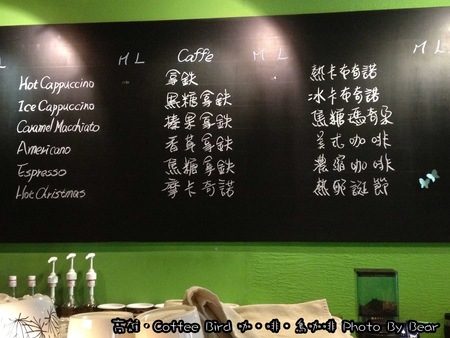 L M L Caffe M L M L
Hot Cappuccino 拿鉄 熱卡布奇諾
Ice Cappuccino 黑糖拿鉄 冰卡布奇諾
Caramel Macchiato 榛果拿鉄 焦糖瑪奇朵
Americano 香草拿鉄 美式咖啡
Espresso 焦糖拿鉄 濃縮咖啡
Hot Christmas 摩卡奇諾 熱耶誕節
高雄·Coffee Bird 咖·啡·鳥咖啡 Photo By Bear